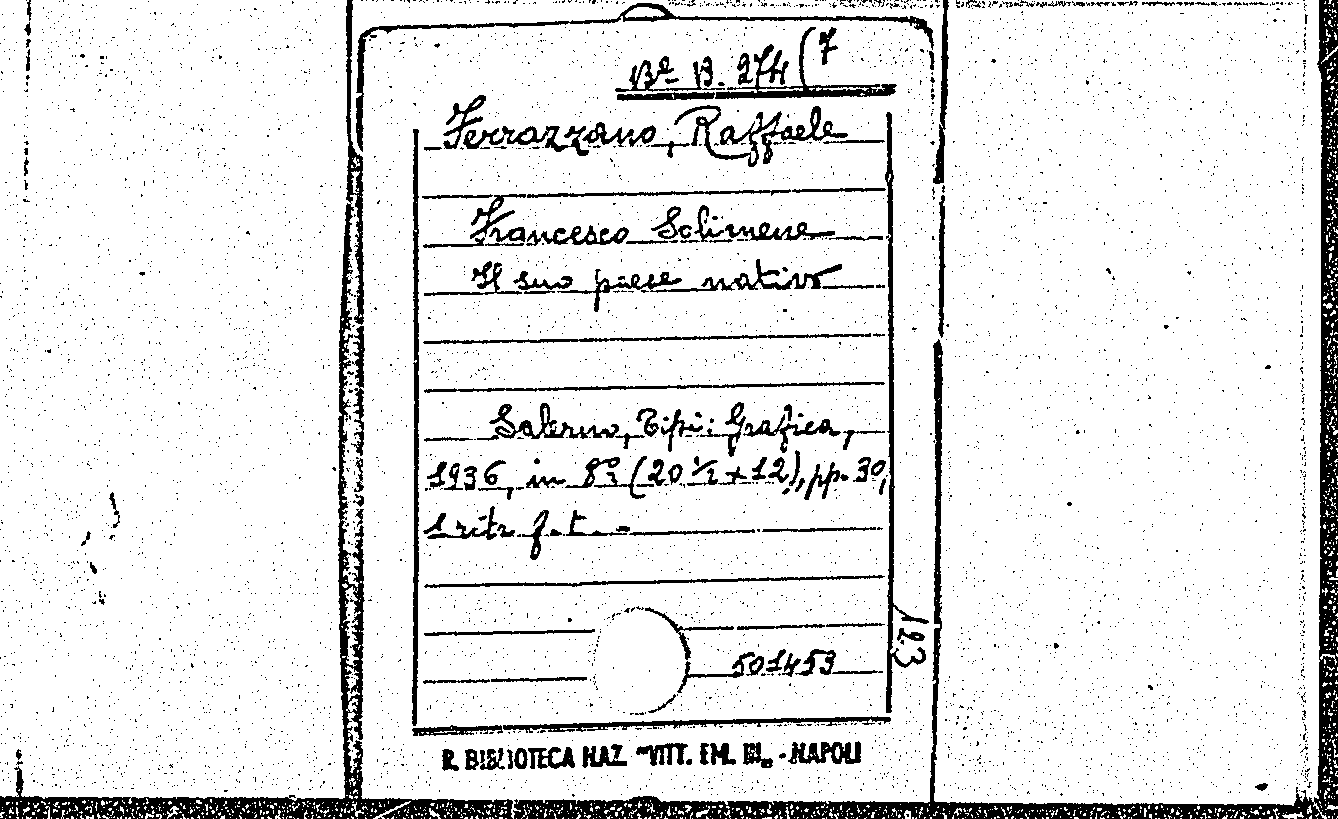 Bª B. 274 (7
Ferrazzano, Raffaele
Francesco Solimene
Il suo paese nativo
Salerno, Tipi: Grafica,
1936, in 8º (20 ½ x 12), pp. 30,
1 ritr. f. t. -
501453
123
R. BIBLIOTECA NAZ. "VITT. EM. III„ - NAPOLI